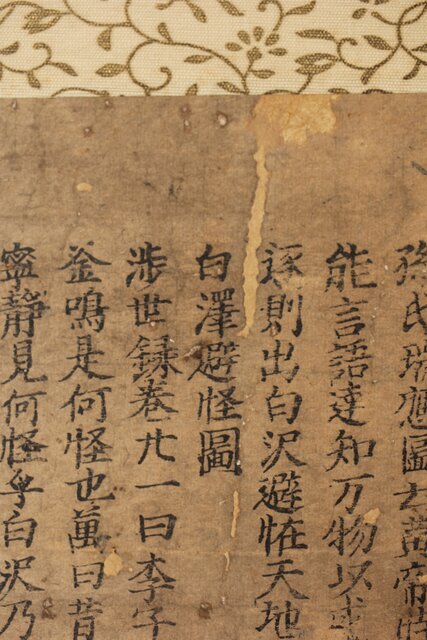 孫氏瑞應圖云黄帝時
能言語達知万物以或
逐則出白沢避恠天地
白澤避怪圖
渉世録巻廿一曰李子
釜鳴是何怪也萬曰昔
寧静見何怪乎白沢乃